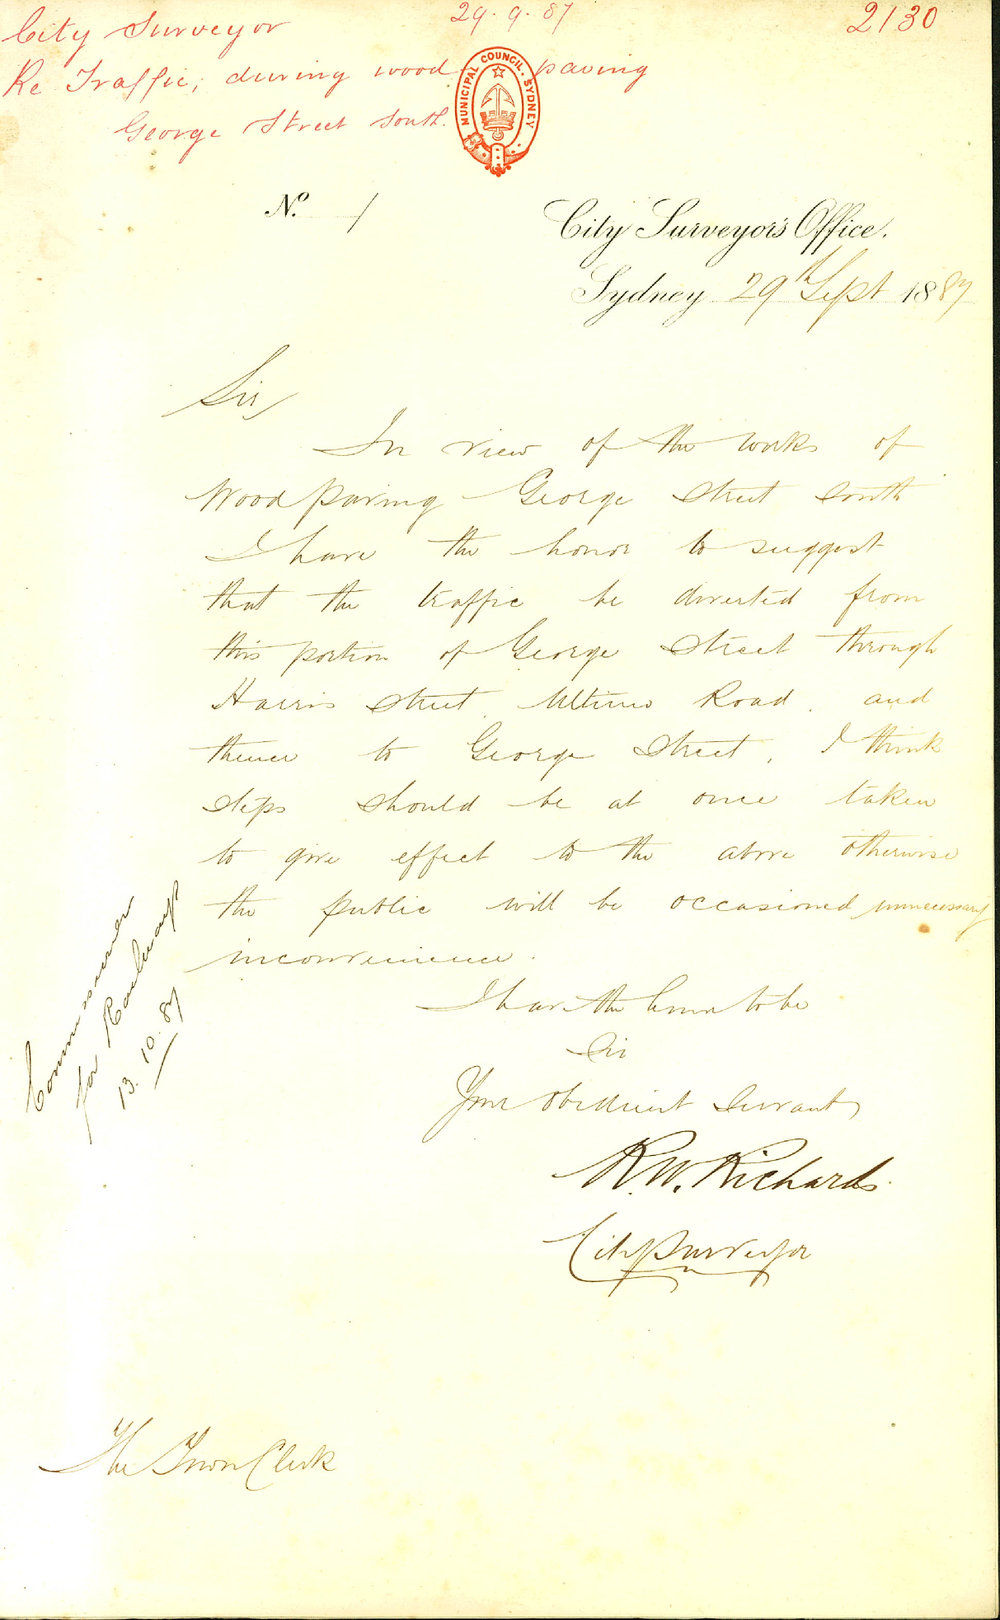 City Surveyor 29.9.87 2130
Re Traffic, during wood paving
George Street South.
MUNICIPAL COUNCIL. SYDNEY
No. 1
City Surveyor's Office.
Sydney 29th Sept 1887
Sir,
In view of the works of
Wood paving George Street South
I have the honor to suggest
that the traffic be diverted from
this portion of George Street through
Harris Street, Ultimo Road, and
thence to George Street, I think
steps should be at once taken
to give effect to the above otherwise
the public will be occasioned unnecessary
inconvenience.
I have the honor to be
Sir
Your obedient Servant,
R.W. Richards.
City Surveyor
Commissioner
for Railways
13.10.87
The Town Clerk